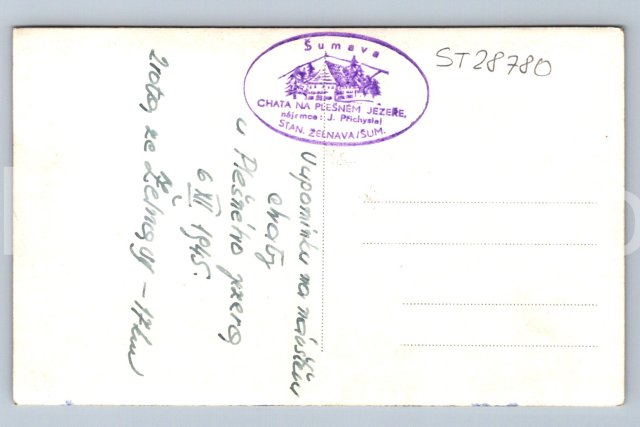 Šumava
CHATA NA PLEŠNÉM JEZEŘE,
nájemce: J. Přichystal
STAN. ŽELNAVA/ŠUM.
ST28780
Upomínka na návštěvu
chaty
u Plešného jezera
6 XII 1945.
ze Želnavy - 17 km